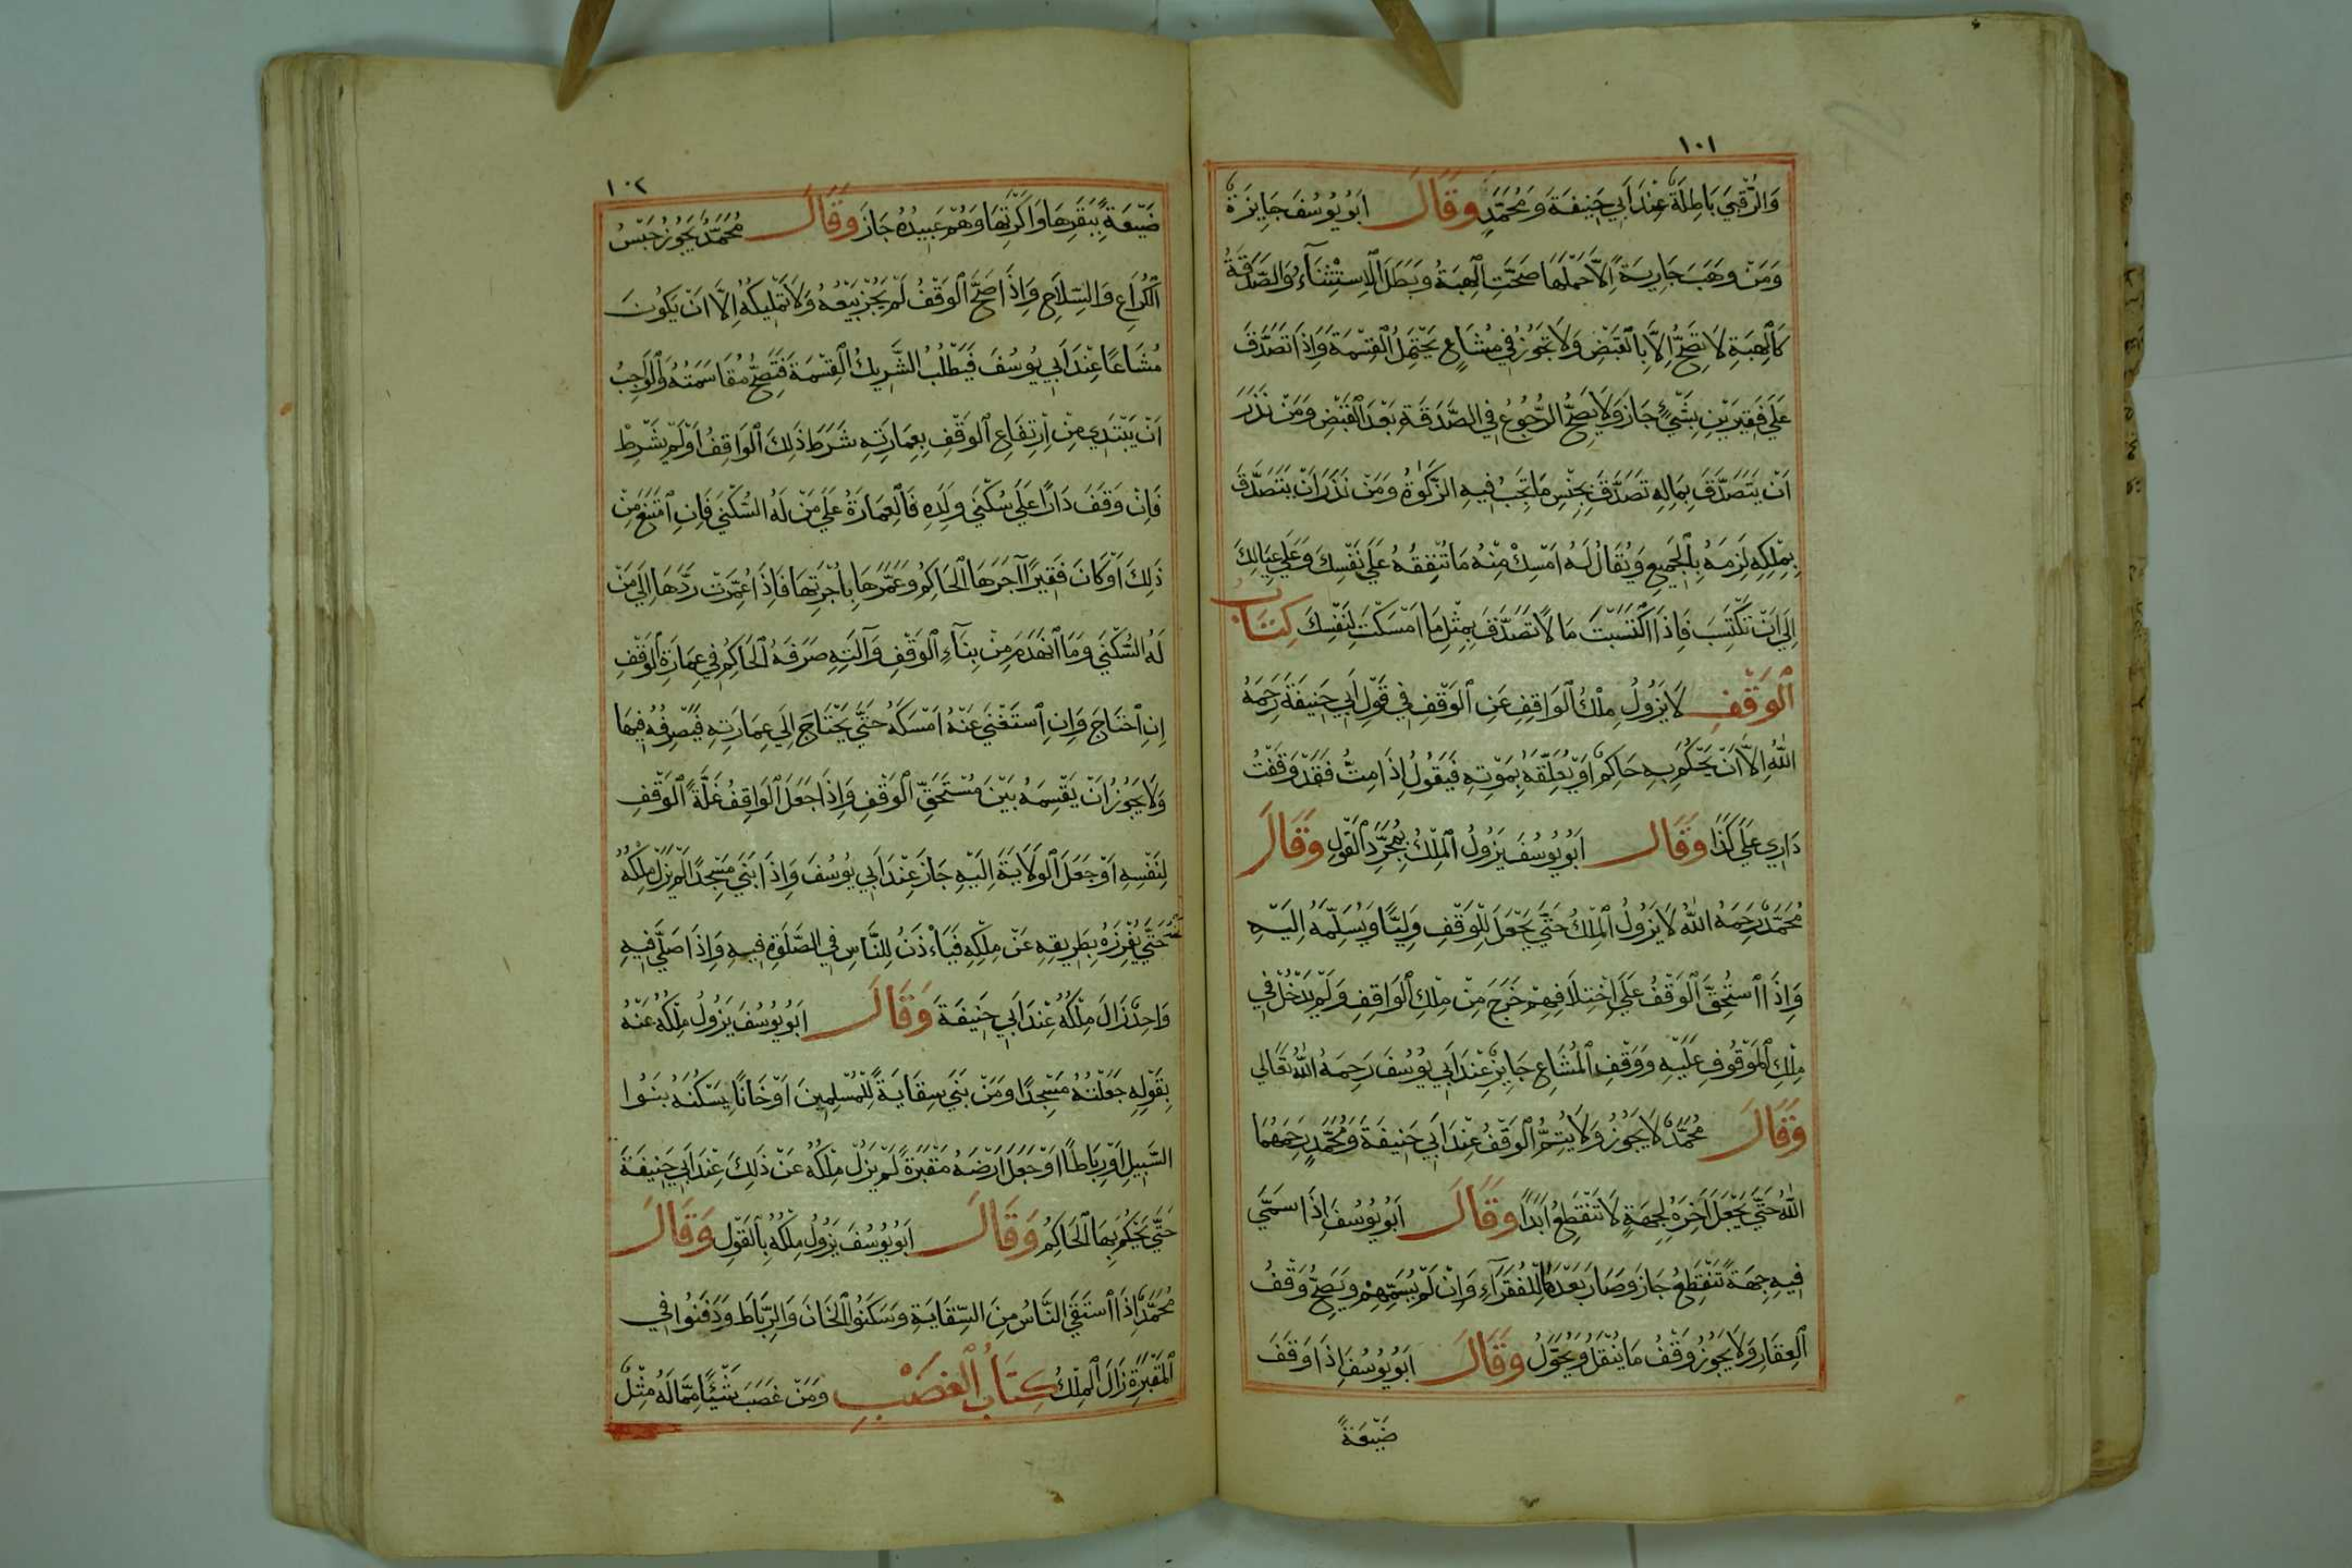 ١٠١
وَالرُّقْبَى بَاطِلَةٌ عِنْدَ اَبِي حَنِيفَةَ وَمُحَمَّدٍ وَقَالَ اَبُو يُوسُفَ جَايِزَةٌ
وَمَنْ وَهَبَ جَارِيَةً اِلَّا حَمْلَهَا صَحَّتِ الْهِبَةُ وَبَطَلَ الْاِسْتِثْنَآءُ وَالصَّدَقَةُ
كَالْهِبَةِ لَا تَصِحُّ اِلَّا بِالْقَبْضِ وَلَا تَجُوزُ فِي مُشَاعٍ يَحْتَمِلُ الْقِسْمَةَ وَاِذَا تَصَدَّقَ
عَلَى فَقِيرَيْنِ بِشَيْءٍ جَازَ وَلَا يَصِحُّ الرُّجُوعُ فِي الصَّدَقَةِ بَعْدَ الْقَبْضِ وَمَنْ نَذَرَ
اَنْ يَتَصَدَّقَ بِمَالِهِ تَصَدَّقَ بِجِنْسِ مَا تَجِبُ فِيهِ الزَّكَوةُ وَمَنْ نَذَرَ اَنْ يَتَصَدَّقَ
بِمِلْكِهِ لَزِمَهُ بِالْجَمِيعِ وَيُقَالُ لَهُ اَمْسِكْ مِنْهُ مَا تُنْفِقُهُ عَلَى نَفْسِكَ وَعَلَى عِيَالِكَ
اِلَى اَنْ تَكْتَسِبَ فَاِذَا اكْتَسَبْتَ مَا لًا تَصَدَّقَ بِمِثْلِ مَا اَمْسَكْتَ لِنَفْسِكَ كِتَابُ
الْوَقْفِ لَا يَزُولُ مِلْكُ الْوَاقِفِ عَنِ الْوَقْفِ فِي قَوْلِ اَبِي حَنِيفَةَ رَحِمَهُ
اللهُ اِلَّا اَنْ يَحْكُمَ بِهِ حَاكِمٌ اَوْ يُعَلِّقَهُ بِمَوْتِهِ فَيَقُولُ اِذَا مِتُّ فَقَدْ وَقَفْتُ
دَارِي عَلَى كَذَا وَقَالَ اَبُو يُوسُفَ يَزُولُ الْمِلْكُ بِمُجَرَّدِ الْقَوْلِ وَقَالَ
مُحَمَّدٌ رَحِمَهُ اللهُ لَا يَزُولُ الْمِلْكُ حَتَّى يَجْعَلَ لِلْوَقْفِ وَلِيًّا وَيُسَلِّمَهُ اِلَيْهِ
وَاِذَا اسْتُحِقَّ الْوَقْفُ عَلَى اخْتِلَافِهِمْ خَرَجَ مِنْ مِلْكِ الْوَاقِفِ وَلَمْ يَدْخُلْ فِي
مِلْكِ الْمَوْقُوفِ عَلَيْهِ وَوَقْفِ الْمُشَاعِ جَايِزٌ عِنْدَ اَبِي يُوسُفَ رَحِمَهُ اللهُ تَعَالَى
وَقَالَ مُحَمَّدٌ لَا يَجُوزُ وَلَا يَتِمُّ الْوَقْفُ عِنْدَ اَبِي حَنِيفَةَ وَمُحَمَّدٍ رَحِمَهُمَا
اللهُ حَتَّى يَجْعَلَ آخِرَهُ لِجِهَةٍ لَا تَنْقَطِعُ اَبَدًا وَقَالَ اَبُو يُوسُفَ اِذَا سَمَّى
فِيهِ جِهَةً تَنْقَطِعُ جَازَ وَصَارَ بَعْدَهَا لِلْفُقَرَآءِ وَاِنْ لَمْ يُسَمِّهِمْ وَيَصِحُّ وَقْفُ
الْعِقَارِ وَلَا يَجُوزُ وَقْفُ مَا يُنْقَلُ وَيُحَوَّلُ وَقَالَ اَبُو يُوسُفَ اِذَا وَقَفَ
ضَيْعَةً
١٠٢
ضَيْعَةً بِبَقَرِهَا وَاَكَرَتِهَا وَهُمْ عَبِيدُهُ جَازَ وَقَالَ مُحَمَّدٌ يَجُوزُ حَبْسُ
الْكُرَاعِ وَالسِّلَاحِ وَاِذَا صَحَّ الْوَقْفُ لَمْ يَجُزْ بَيْعُهُ وَلَا تَمْلِيكُهُ اِلَّا اَنْ يَكُونَ
مُشَاعًا عِنْدَ اَبِي يُوسُفَ فَيَطْلُبُ الشَّرِيكُ الْقِسْمَةَ فَتَصِحُّ مُقَاسَمَتُهُ وَالْوَاجِبُ
اَنْ يَبْتَدِي مِنْ اِرْتِفَاعِ الْوَقْفِ بِعِمَارَتِهِ شَرَطَ ذَلِكَ الْوَاقِفُ اَوْ لَمْ يَشْرِطْ
فَاِنْ وَقَفَ دَارًا عَلَى سُكْنَى وَلَدِهِ فَالْعِمَارَةُ عَلَى مَنْ لَهُ السُّكْنَى فَاِنِ امْتَنَعَ مِنْ
ذَلِكَ اَوْ كَانَ فَقِيرًا آجَرَهَا الْحَاكِمُ وَعَمَّرَهَا بِاُجْرَتِهَا فَاِذَا عُمِّرَتْ رَدَّهَا اِلَى مَنْ
لَهُ السُّكْنَى وَمَا انْهَدَمَ مِنْ بِنَآءِ الْوَقْفِ وَآلَتِهِ صَرَفَهُ الْحَاكِمُ فِي عِمَارَةِ الْوَقْفِ
اِنِ احْتَاجَ وَاِنِ اسْتَغْنَى عَنْهُ اَمْسَكَهُ حَتَّى يَحْتَاجَ اِلَى عِمَارَتِهِ فَيَصْرِفُهُ فِيهَا
وَلَا يَجُوزُ اَنْ يَقْسِمَهُ بَيْنَ مُسْتَحَقِّ الْوَقْفِ وَاِذَا جَعَلَ الْوَاقِفُ غَلَّةَ الْوَقْفِ
لِنَفْسِهِ اَوْ جَعَلَ الْوَلَايَةَ اِلَيْهِ جَازَ عِنْدَ اَبِي يُوسُفَ وَاِذَا بَنَى مَسْجِدًا لَمْ يَزُلْ مِلْكُهُ
عَنْهُ حَتَّى يُفْرِزَهُ بِطَرِيقِهِ عَنْ مِلْكِهِ فَيَأْذَنُ لِلنَّاسِ فِي الصَّلَوةِ فِيهِ وَاِذَا صَلَّى فِيهِ
وَاحِدٌ زَالَ مِلْكُهُ عِنْدَ اَبِي حَنِيفَةَ وَقَالَ اَبُو يُوسُفَ يَزُولُ مِلْكُهُ عَنْهُ
بِقَوْلِهِ جَعَلْتُهُ مَسْجِدًا وَمَنْ بَنَى سِقَايَةً لِلْمُسْلِمِينَ اَوْ خَانًا يَسْكُنُهُ بَنُوا
السَّبِيلِ اَوْ رِبَاطًا اَوْ جَعَلَ اَرْضَهُ مَقْبَرَةً لَمْ يَزُلْ مِلْكُهُ عَنْ ذَلِكَ عِنْدَ اَبِي حَنِيفَةَ
حَتَّى يَحْكُمَ بِهَا الْحَاكِمُ وَقَالَ اَبُو يُوسُفَ يَزُولُ مِلْكُهُ بِالْقَوْلِ وَقَالَ
مُحَمَّدٌ اِذَا اسْتَقَى النَّاسُ مِنَ السِّقَايَةِ وَسَكَنُوا الْخَانَ وَالرِّبَاطَ وَدَفَنُوا فِي
الْمَقْبَرَةِ زَالَ الْمِلْكُ كِتَابُ الْغَصْبِ وَمَنْ غَصَبَ شَيْئًا مِمَّا لَهُ مِثْلٌ